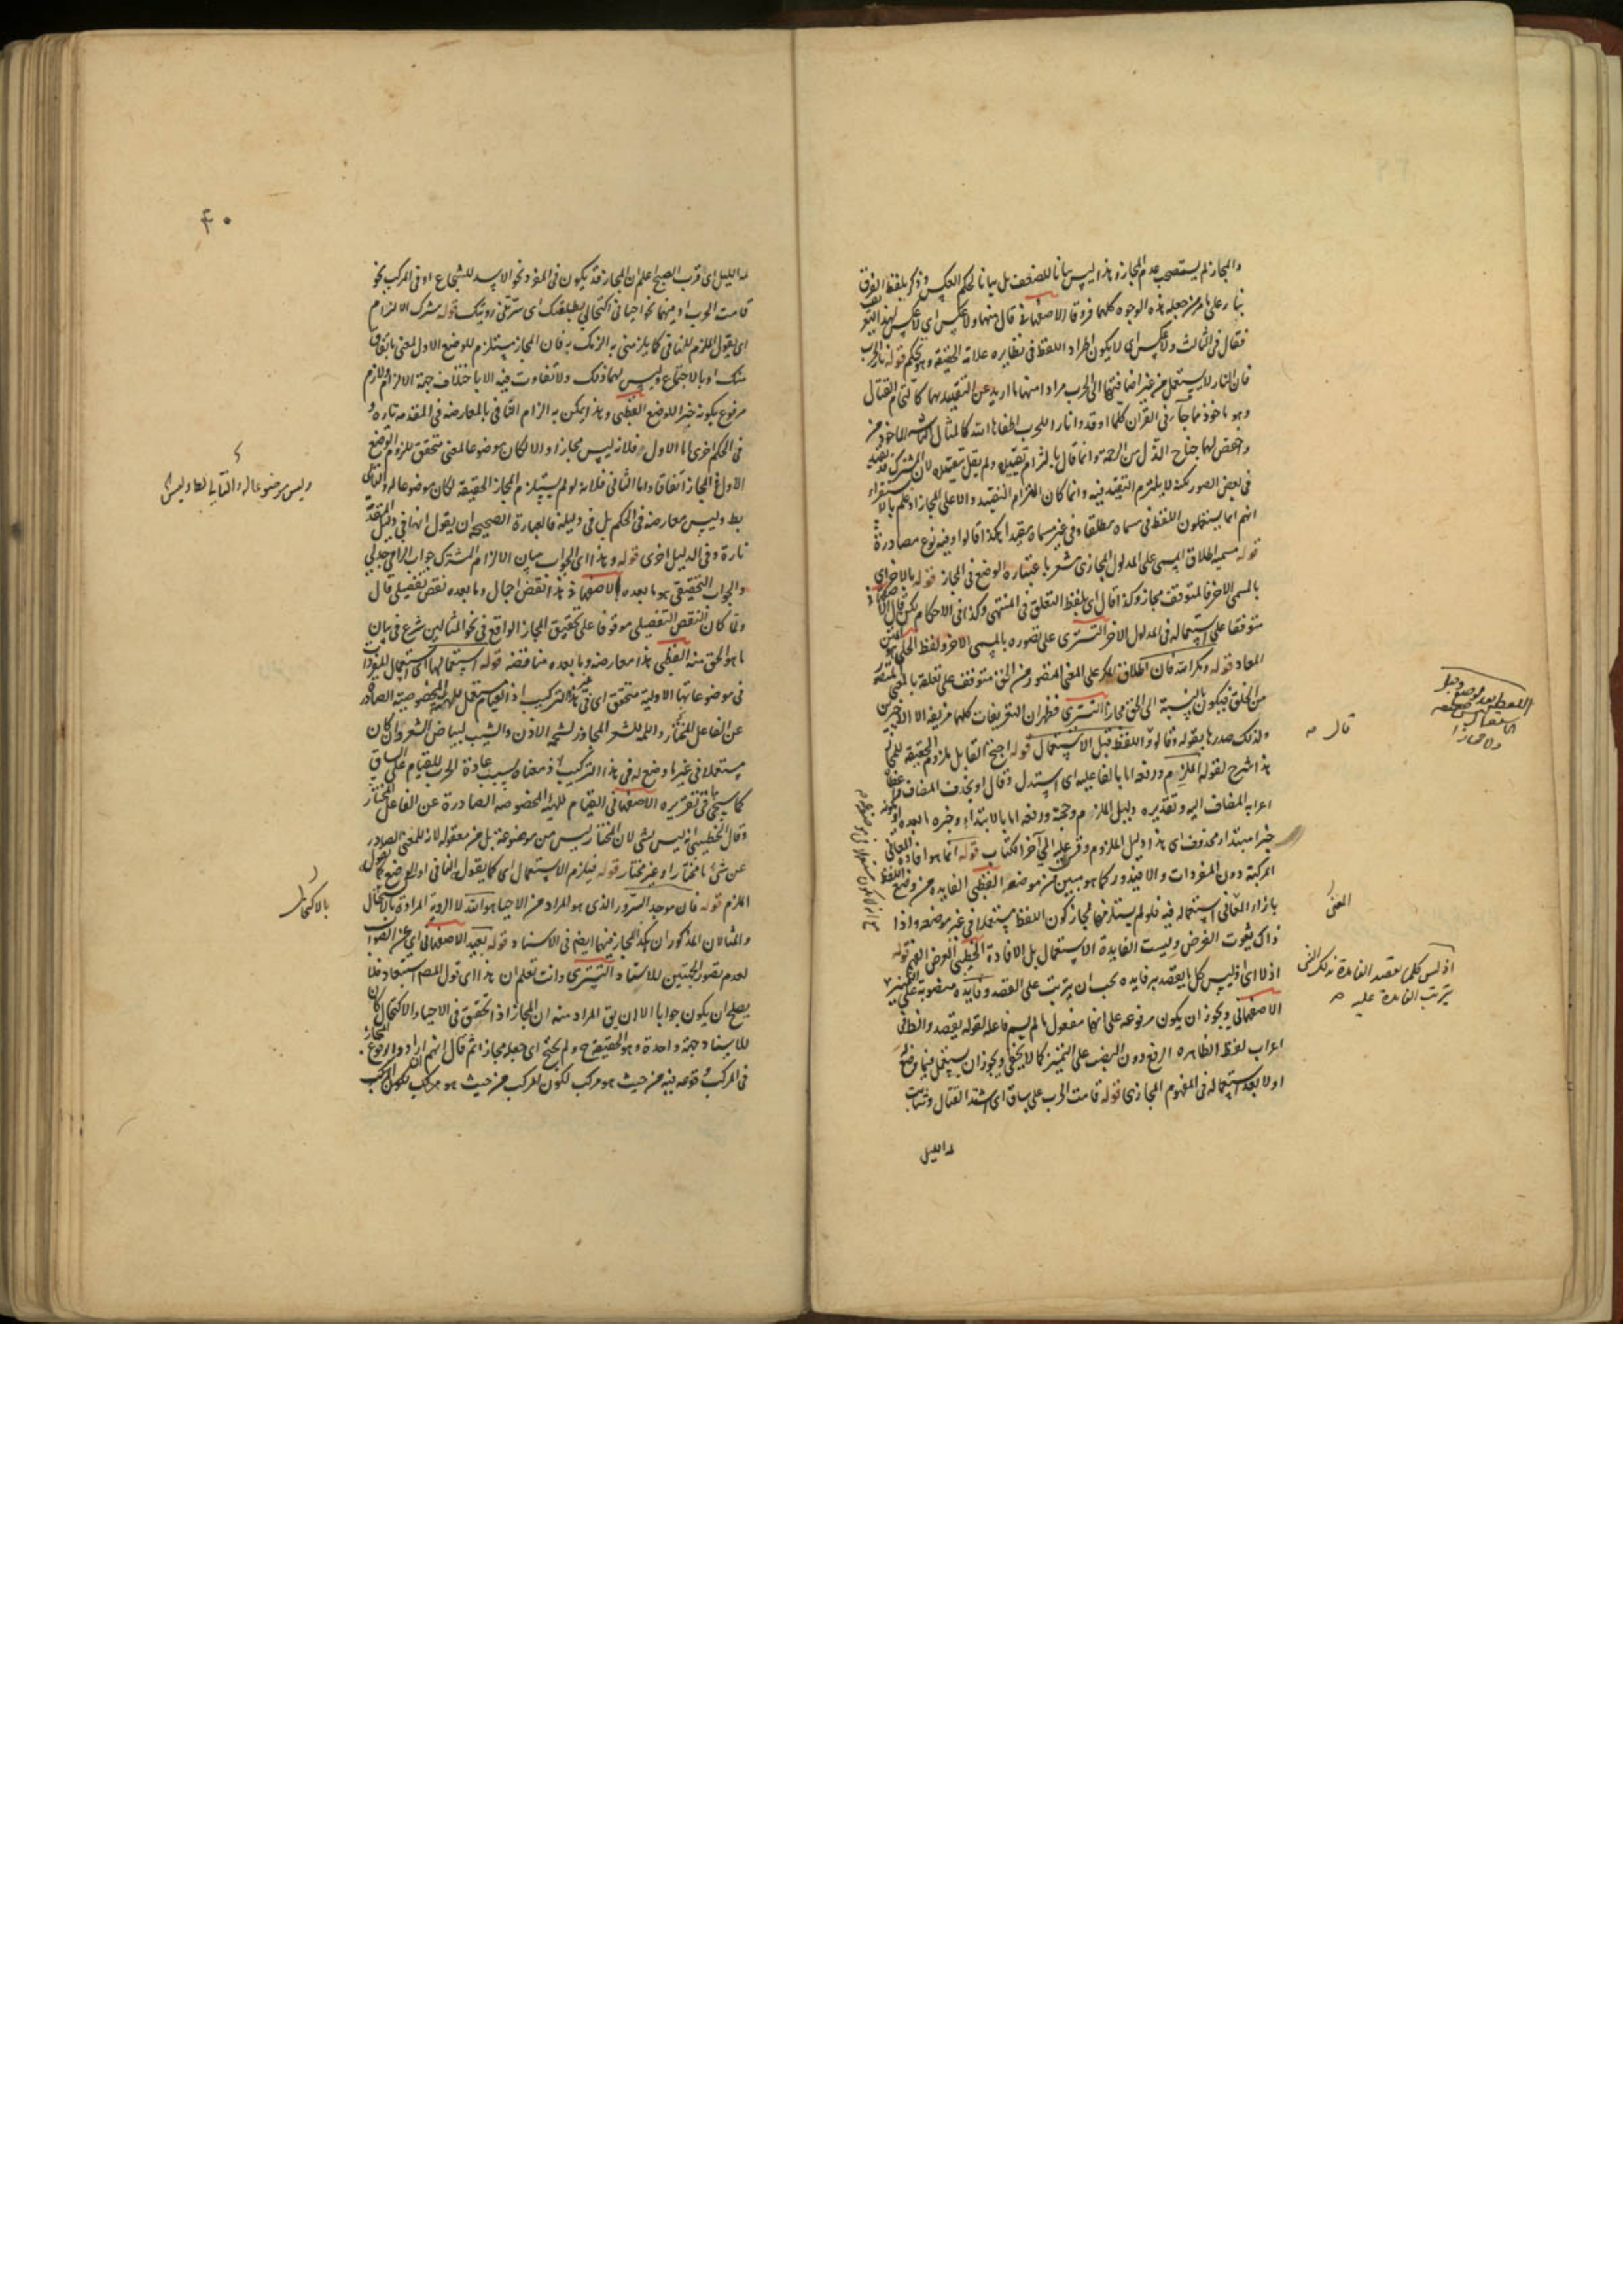 والمجاز لم يستصحب عدم المجاز وهذا ليس بيانا للضعف بل بيانا لحكم العكس وذكر بلفظ الفرق
بناء على ما مر من جعله هذه الوجوه كلها فروقا الاصفهاني قال منها ولا عكس اى لا عكس لهذا
فقال فى الثالث ولا عكس اى لا يكون اطراد اللفظ فى نظايره علامة الحقيقة وهو تحكم قوله نار الحرب
فان النار لا يستعمل من غير اضافتها الى الحرب مرادا منها ما اريد عن التقييد بها كالتحام القتال
وهو ماخوذ مما جاء فى القران كلما اوقدوا نارا للحرب اطفاها الله كالمثال الماخوذ من
واخفض لهما جناح الذل من الرحمة وانما قال بالتزام تقييده ولم يقل بتقييده لان المشترك قد يقيد
فى بعض الصور لكنه لا يلتزم التقييد فيه وانما كان التزام التقييد دالا على المجاز اذ علم بالاستقراء
انهم انما يستعملون اللفظ فى مسماه مطلقا وفى غير مسماه مقيدا هكذا قالوا وفيه نوع مصادرة
قوله مسميه اطلاق المسمى على المدلول المجازى مشعر باعتباره الوضع فى المجاز قوله بالاخر اى
بالمسمى الاخر فالمتوقف مجاز وكذا قال اى بلفظ التعلق فى المنتهى وكذا فى الاحكام لكن قال
متوقفا على استعماله فى المدلول الاخر التسترى على تصوره بالمسمى الاخر ولفظ
المعاد قوله ومكر الله فان اطلاق المكر على المعنى المتصور من الحق متوقف على تعلقه بالمعنى المتصور
من الخلق فيكون بالنسبة الى الحق مجازا التسترى فظهر ان التعريفات كلها مزيفة الا الاخيرين
ولذلك صدرها بقوله وقالوا واللفظ قبل الاستعمال قوله احتج القايل بلزوم الحقيقة للمجاز
هذا شرح لقوله الملزم ورفعه اما بالفاعلية اى استدل وقال او بحذف المضاف
اعرابه المضاف اليه وتقديره دليل الملزوم وحجته ورفعه اما بالابتداء وخبره ما بعده
خبر مبتدا محذوف اى هذا دليل الملزوم وقس عليه الى آخر الكتاب قوله انما هو افادة المعانى
المركبة دون المفردات والا فيدور كما هو مبين من موضعه القطبى الفايدة من وضع اللفظ
بازاء المعانى استعماله فيه فلو لم يستلزمها مجاز كون اللفظ مستعملا فى غير موضعه واذا
ذاك يفوت الغرض وليست الفايدة الاستعمال بل الافادة الخطيبى الغرض قوله
اذ لا اى اذ ليس كل ما يقصد به فايده يجب ان يترتب على القصد وفايده منصوبة على التمييز
الاصفهانى ويجوز ان يكون مرفوعة على انها مفعول ما لم يسم فاعله لقوله يقصد
اعراب لفظ الظاهره الرفع دون النصب على التمييز كما لا يخفى ويجوز ان يستعمل فيما وضع له
اولا بعد استعماله فى المفهوم المجازى قوله قامت الحرب على ساق اى اشتد القتال وشابت
لمة الليل
قال
المعنى
اذ ليس كلما يقصد الفايدة لذلك الشى
يترتب الفايدة عليه
۴۰
لمة الليل اى قرب الصبح اعلم ان المجاز قد يكون فى المفرد نحو الاسد للشجاع او فى المركب نحو
قامت الحرب او فيهما نحو احيانى اكتحالى بطلعتك اى سرتنى رويتك قوله مشترك الالزام
اى يقول الملزم للنافى كما يلزمنى به الزمك به فان المجاز مستلزم للوضع الاول لمعنى باتفاق
منك او بالاجتماع وليس لهما ذلك ولا تفاوت فيه الا باختلاف جهة الالزام ولازم
مرفوع بكونه خبرا للوضع القطبى وهذا يمكن به الزام النافى بالمعارضه فى المقدمه تارة و
فى الحكم اخرى اما الاول فلانه ليس مجازا والا لكان موضوعا لمعنى متحقق للزوم الوضع
الاول فى المجاز اتفاقا واما الثانى فلانه لو لم يستلزم المجاز الحقيقه لكان موضوعا له والتالى
بط وليس معارضه فى الحكم بل فى دليله فالعبارة الصحيحه ان يقول انها فى دليل المقدمة
تارة وفى الدليل اخرى قوله وهذا اى الجواب ببيان الالزام المشترك جواب الزامى جدلى
والجواب التحقيقى هو ما بعده الاصفهانى هذا نقض اجمال وما بعده نقض تفصيلى قال
ولما كان النقض التفصيلى موقوفا على تحقيق المجاز الواقع فى نحو المثالين شرع فى بيان
ما هو الحق منه القطبى هذا معارضه وما بعده مناقضه قوله استعمالها اى استعمال المفردات
فى موضوعاتها الاولية متحقق اى فى هذا التركيب اذ القيام مستعمل للهيئة المخصوصة الصادرة
عن الفاعل المختار واللمة للشعر المجاوز لشحمة الاذن والشيب لبياض الشعر وان كان
مستعملا فى غير ما وضع له فى هذا التركيب اذ معناه بسبب عادة الحرب للقيام على الساق
كما سيجئ فى تقريره الاصفهانى القيام للهيئة المخصوصة الصادرة عن الفاعل المختار
وقال الخطيبى انه ليس بشى لان المختار ليس من موضوعه بل من معقوله لانه للمعنى الصادر
عن شئ ما مختار او غير مختار قوله فيلزم الاستعمال اى كما يقول النافى او الوضع كما يقول
الملزم قوله فان موجد السرور الذى هو المراد من الاحيا هو الله لا الروية المرادة بالاكتحال
والمثالان المذكوران يكون المجاز فيهما ايضا فى الاسناد قوله بعيد الاصفهانى اى عن الصواب
لعدم تصور الجهتين للاسناد التسترى وانت تعلم ان هذا اى قول المصـ استبعاد فلا
يصلح ان يكون جوابا الا ان يق المراد منه ان المجاز اذا تحقق فى الاحياء والاكتحال كان
للاسناد جهة واحدة وهو الحقيقة ولم يحتج اى جعله مجازا ثم قال انهم ارادوا بوقوع المجاز
فى المركب وقوعه فيه من حيث هو مركب لكون المركب من حيث هو مركب
وليس موضوعا له والتالى بط وليس
بالاكتحال